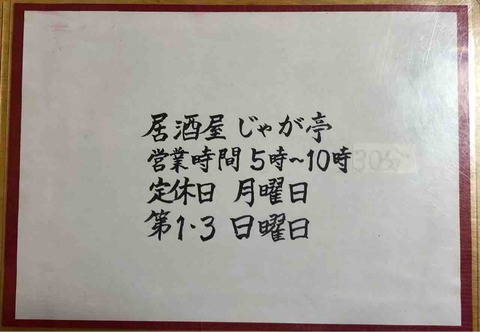 居酒屋 じゃが亭
営業時間 5時~10時
定休日 月曜日
第1·3 日曜日